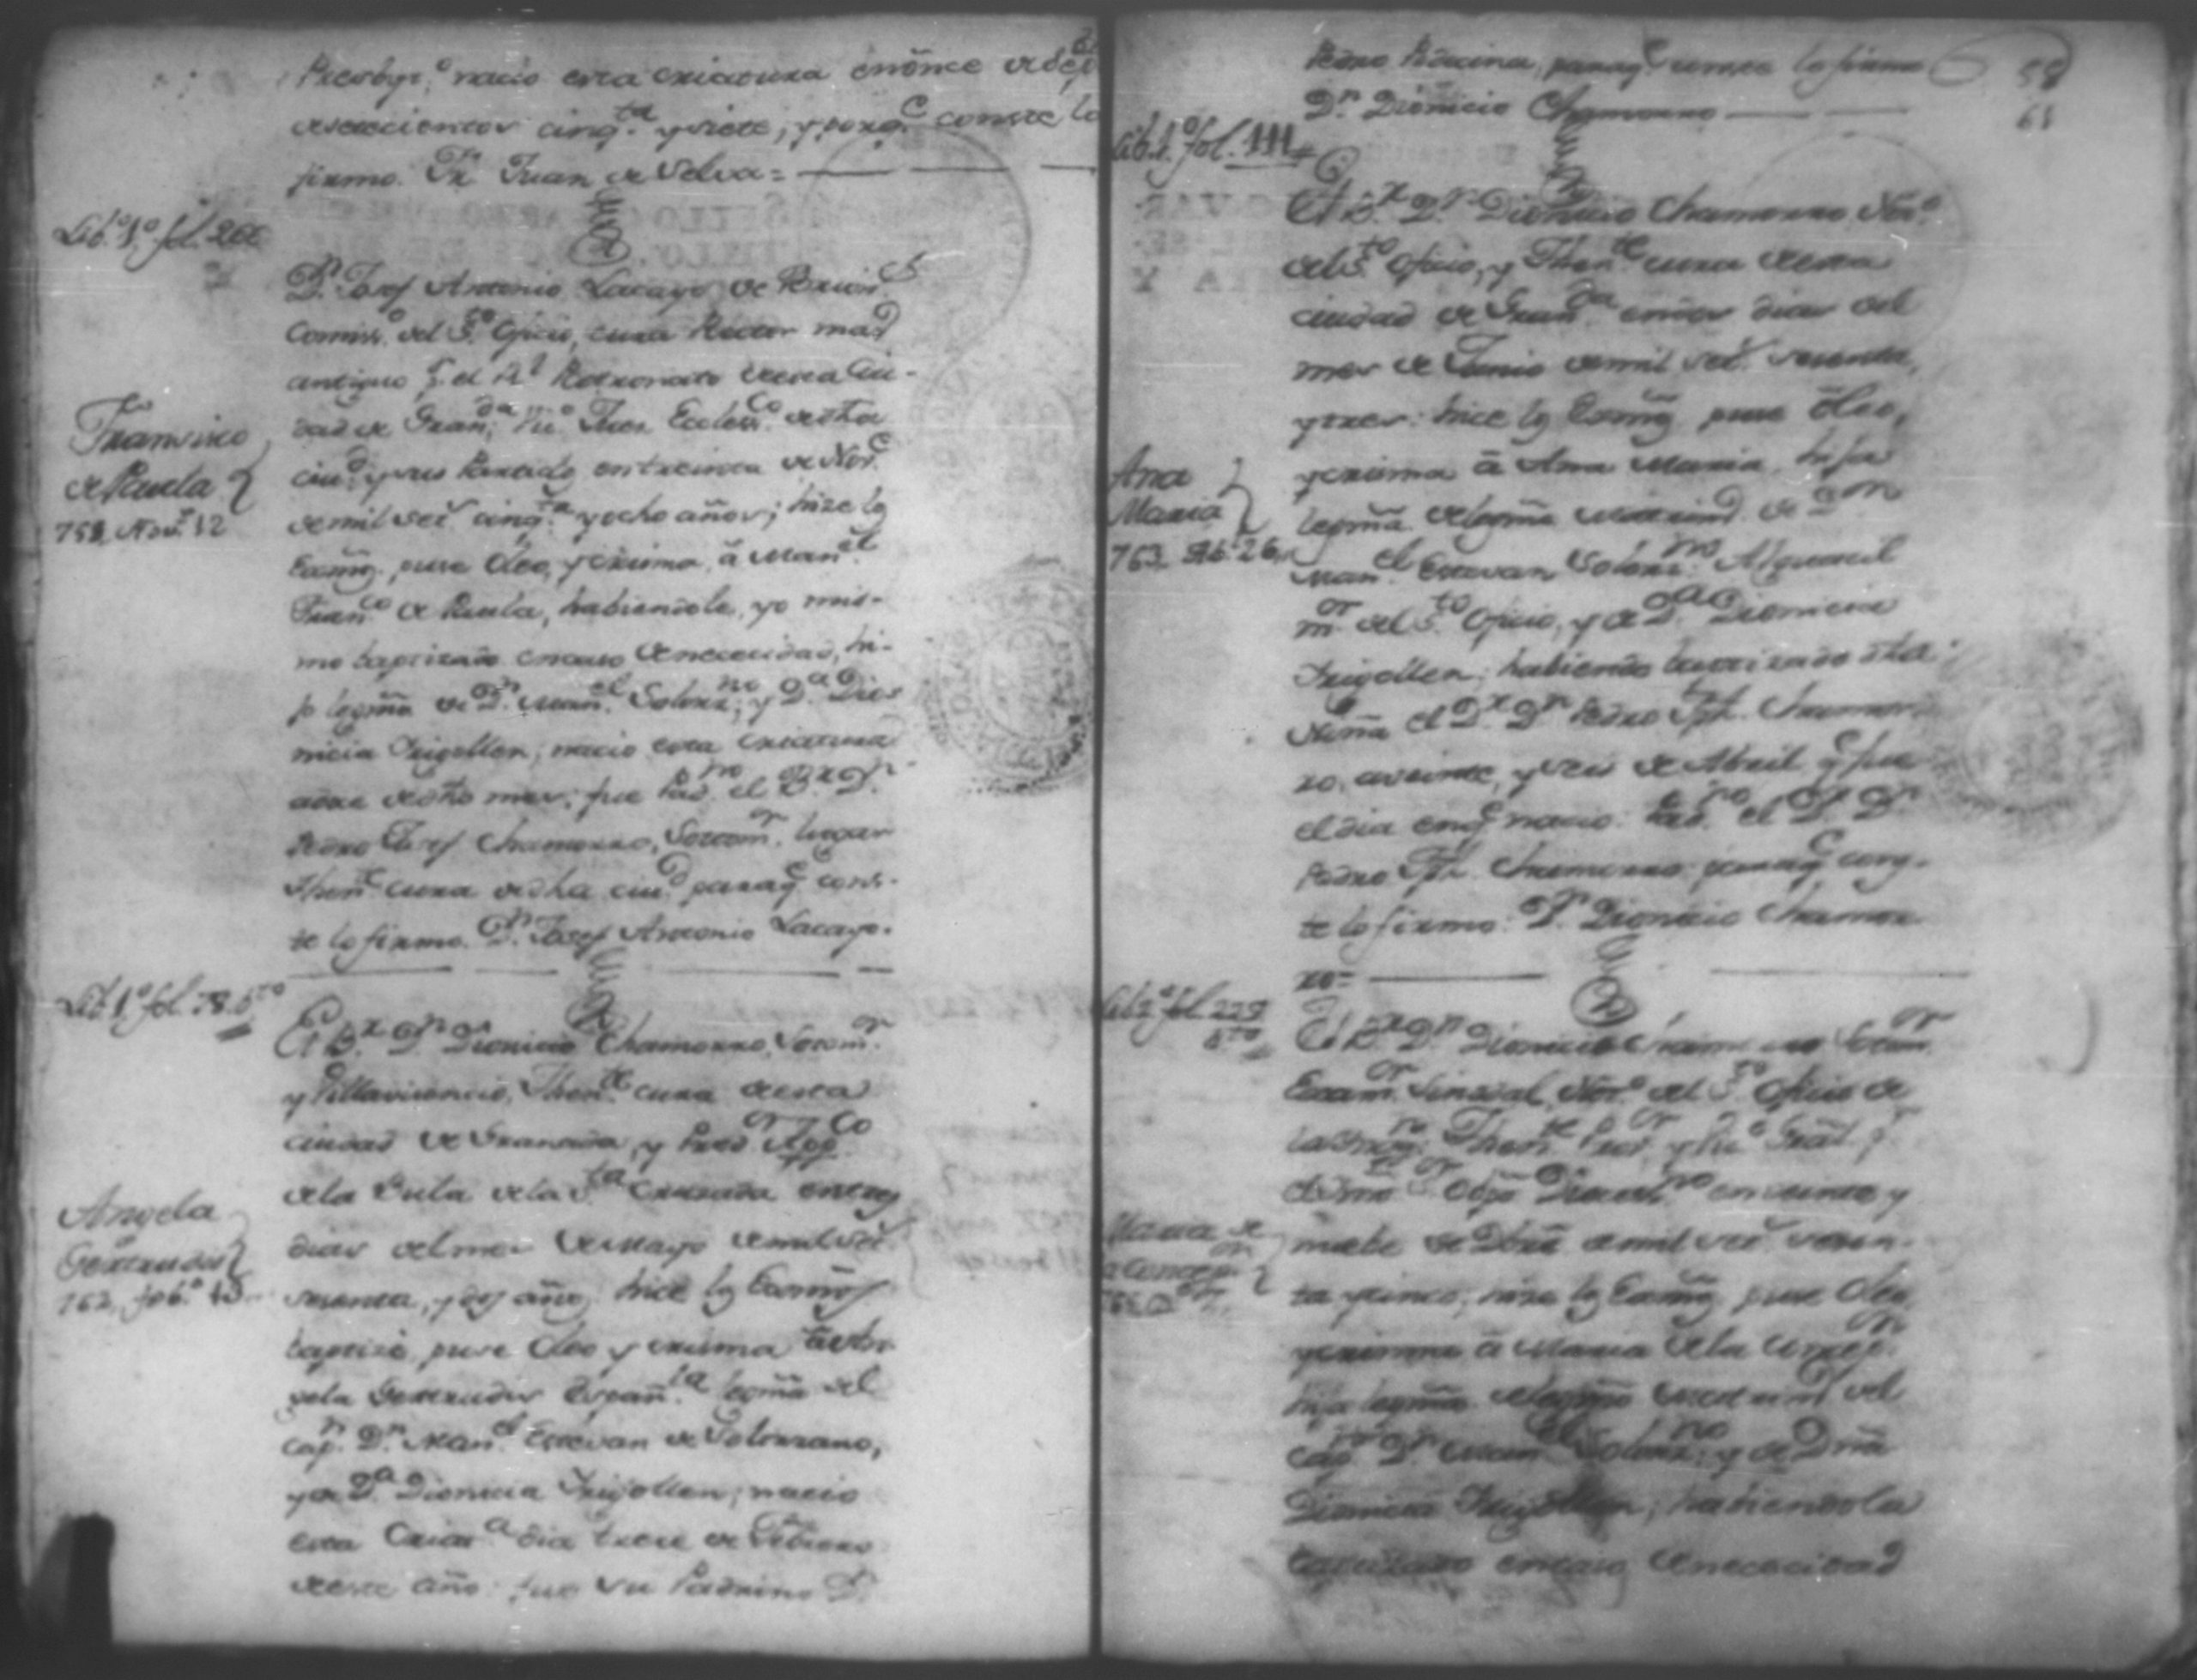 Presbyt.º nacio esta criatura en onse de
de setecientos cinq.ta y siete, y para q.e conste lo
firmo. Fr. Juan de Selva =
Lib.º 1.º fol. 200
D.n Josef Antonio Lacayo de Briones
Comiss.º del S.to Oficio, cura Rector mas
antiguo p.r el R.l Patronato de esta Ciu-
dad de Gran.da Vic.º Juez Eccless.co de dha
ciu.d y su Partido, en treinta de Nov.e
de mil set.s cinq.ta y ocho años; hize los
Exorsm.s puse oleo, y crisma, â Man.el
Fran.co de Paula, habiendole yo mis-
mo baptizado en caso de necesidad, hi-
jo legmo de D.n Man.el Solorz.no y D.a Dio-
nicia Irigollen; nacio esta criatura
a doze de dho mes; fue Pad.no el B.r D.n
Pedro Josef Chamorro, Sotom.r lugar
Then.te cura de dha ciu.d para q.e cons-
te lo firmo. D.n Josef Antonio Lacayo.
Francisco
de Paula
758, Nov.e 12
Lib.º 1.º fol. 78. bto
El B.r D.n Dionicio Chamorro, Sotom.r
y Villavicencio, Then.te cura de esta
ciudad de Granada, y Pred.or App.co
de la Bula de la S.ta Cruzada en tres
dias del mes de Mayo de mil set.s
sesenta, y dos años hice los Exorsmos
baptisé, puse oleo y crisma â An-
gela Gertrudis Españ.la legma del
Cap.n D.n Man.el Estevan de Solorzano,
y de D.a Dionicia Irigollen; nacio
esta Criat.a dia trece de Febrero
de este año: fue su Padrino D.n
Angela
Gertrudis
762, feb.º 13
Pedro para q.e conste lo firmo
D.n Dionicio Chamorro
58
61
Lib. 1.º fol. 111
El B.r D.n Dionicio Chamorro, Not.º
del S.to Oficio, y Then.te cura de esta
ciudad de Gran.da en dias del
mes de Junio de mil set.s sesenta,
y tres: hice los Exorsm.s puse oleo,
y crisma â Ana Maria, hija
legma de legmo matrim.º de D.n
Man.el Estevan Solorz.no Alguacil
m.or del S.to Oficio, y de D.a Dionicia
Irigollen; habiendo bautizado dha
Niña el B.r D.n Pedro Jph. Chamor-
ro, a veinte, y seis de Abril q.e fue
el dia en q.e nacio: Pad.no el B.r D.n
Pedro Jph. Chamorro para q.e cons-
te lo firmo: D.n Dionicio Chamor-
ro =
Ana
Maria
763. Ab. 26
Lib. 2.º fol. 229
bto
El B.r D.n Dionicio Chamorro Sotom.r
Exam.or Sinodal, Not.º del S.to Oficio de
la Inq.n Then.te y Vic.º Gral p.r
el Illmo S.or Obpo en veinte y
nuebe de de mil set.s sesen-
ta y cinco; hise los Exorsm.s puse oleo
y crisma â Maria de la Concep.n
hija legma de legmo matrim.º del
Cap.n D.n Man.el Solorz.no y de Dña
Dionicia Irigollen; habiendola
baptizado en caso de nececidad
Maria de
la Concep.on